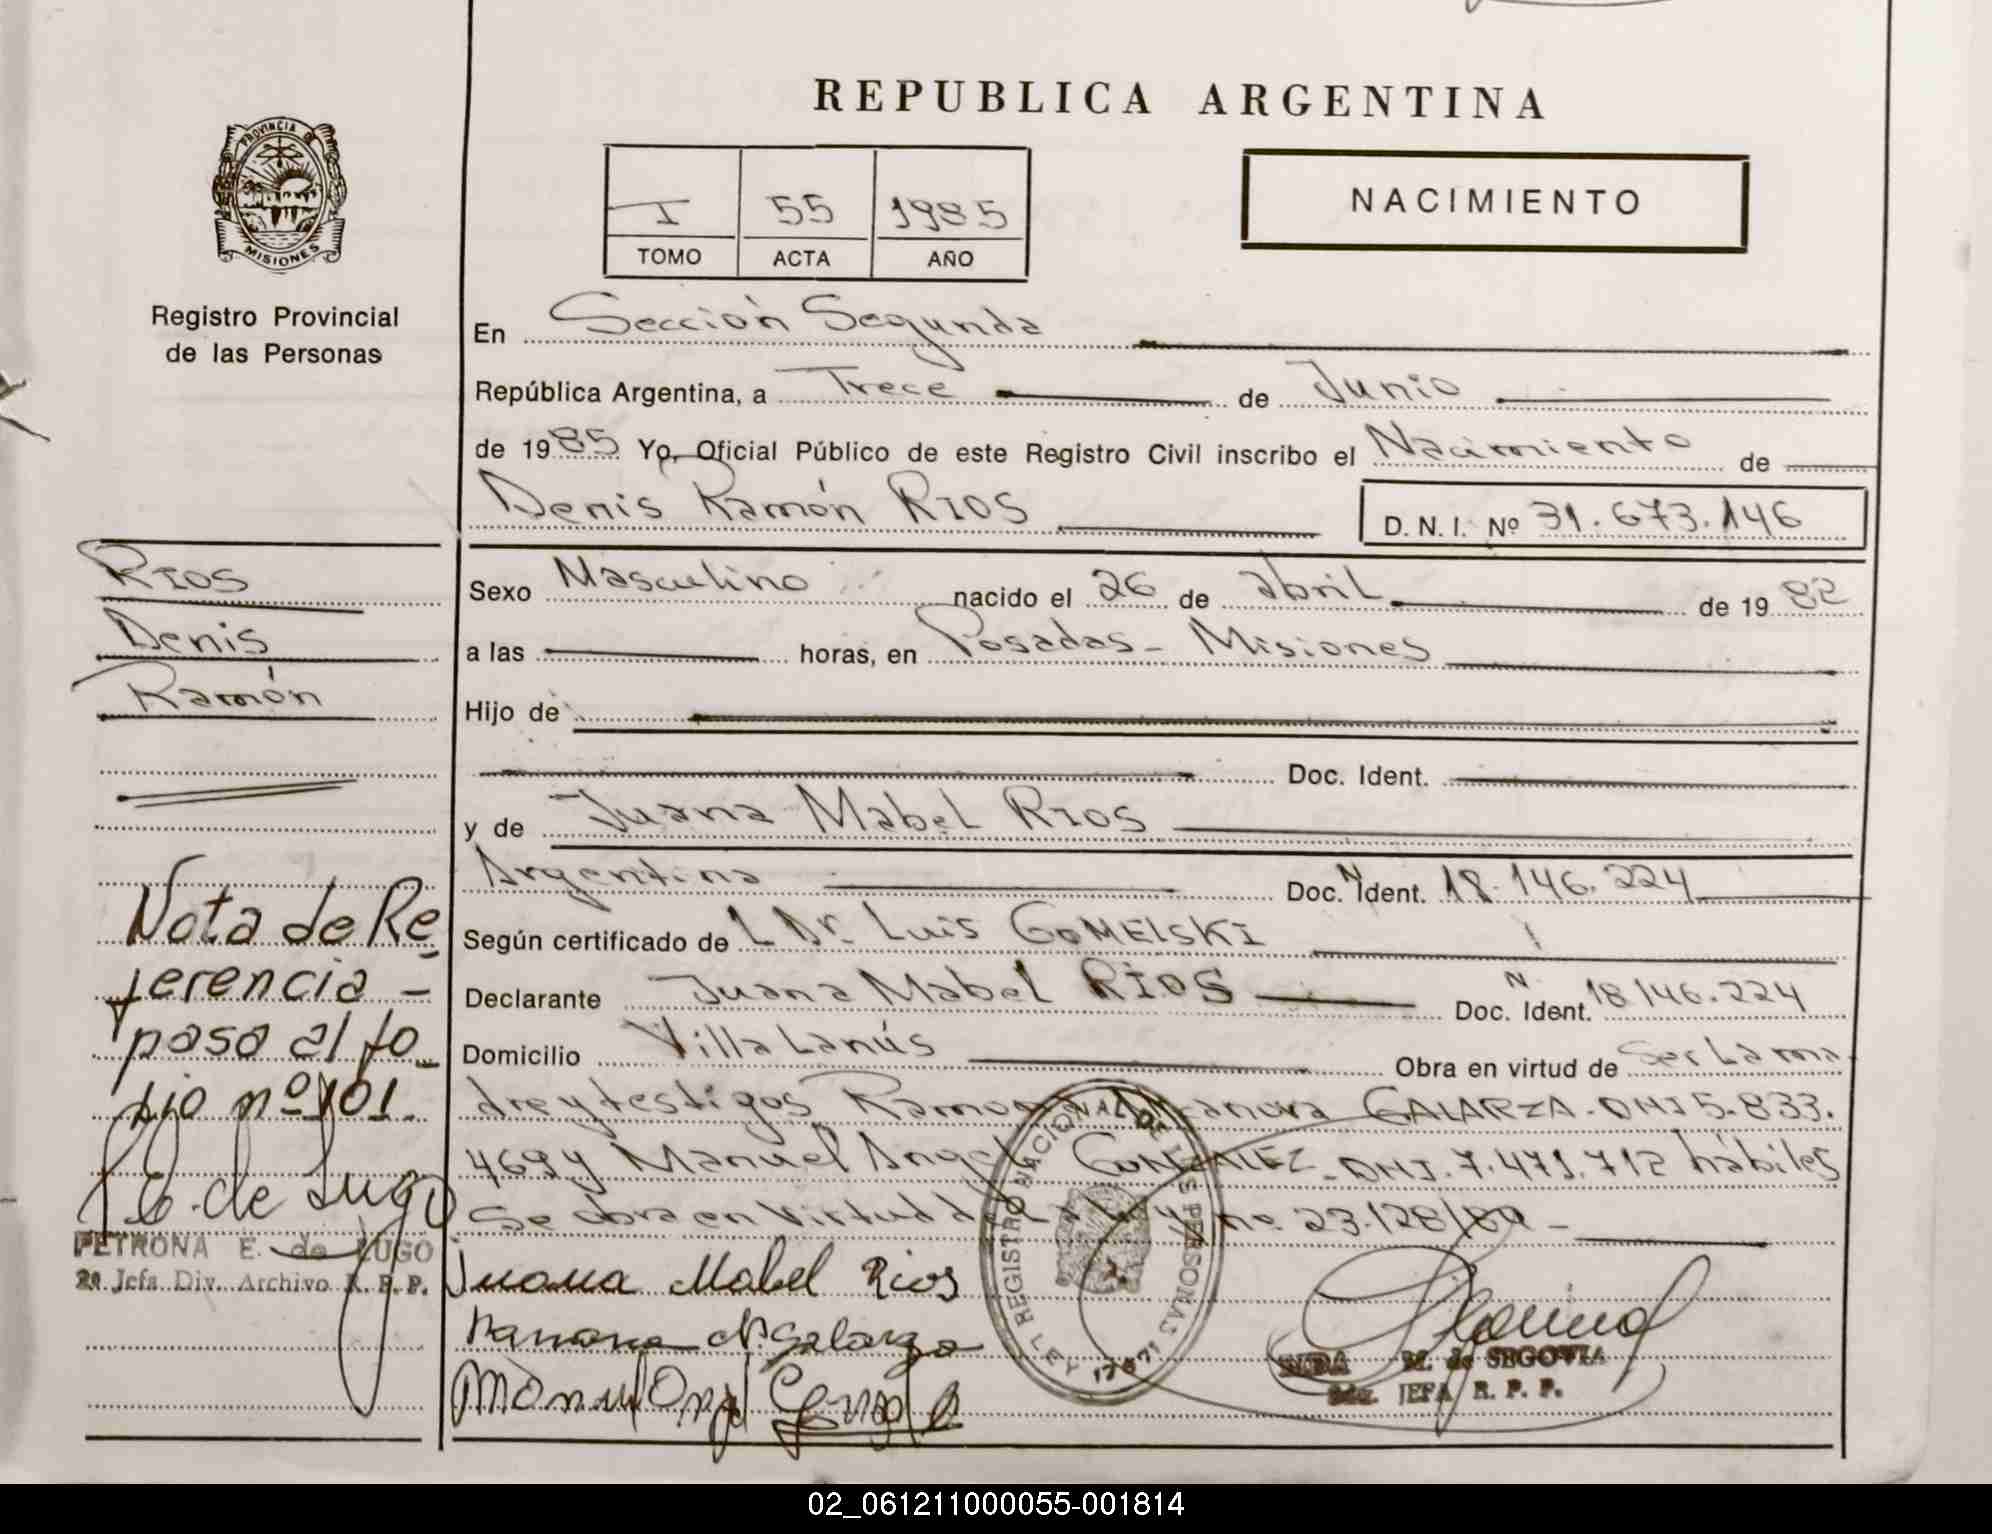 REPUBLICA ARGENTINA
PROVINCIA DE
MISIONES
Registro Provincial
de las Personas
I 55 1985
TOMO ACTA AÑO
NACIMIENTO
En Sección Segunda
República Argentina, a Trece de Junio
de 1985 Yo, Oficial Público de este Registro Civil inscribo el Nacimiento de
Denis Ramón RIOS D. N. I. Nº 31.673.146
RIOS
Denis
Ramón
Sexo Masculino nacido el 26 de abril de 1982
a las horas, en Posadas - Misiones
Hijo de
Doc. Ident.
y de Juana Mabel RIOS
Argentina Doc. Ident. N 18.146.224
Según certificado de L Dr. Luis GOMELSKI
Declarante Juana Mabel RIOS Doc. Ident. N 18146.224
Domicilio Villa Lanús Obra en virtud de Ser La ma
dre y testigos Ramona GALARZA - DNI 5.833.
469 y Manuel Angel GONZALEZ - DNI. 7.471.712 hábiles
Se obra en Virtud de La Ley nº 23.128/84 -
Nota de Re
ferencia -
pasa al fo
lio nº 101.
P. E. de Lugo
PETRONA E. de LUGO
2ª Jefa Div. Archivo R. P. P.
Juana Mabel Rios
Ramona N. Galarza
Manuel Angel Gonzalez
REGISTRO NACIONAL DE LAS PERSONAS
LEY 17671
M. de SEGOVIA
JEFA R. P. P.
02_061211000055-001814